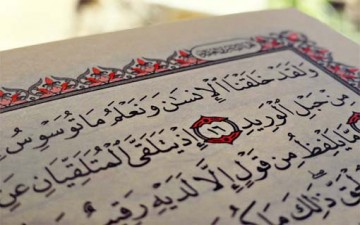 وَلَقَدْ خَلَقْنَا ٱلْإِنسَٰنَ وَنَعْلَمُ مَا تُوَسْوِسُ
مِنْ حَبْلِ ٱلْوَرِيدِ ١٦ إِذْ يَتَلَقَّى ٱلْمُتَلَقِّيَانِ عَنِ
مَّا يَلْفِظُ مِن قَوْلٍ إِلَّا لَدَيْهِ رَقِيبٌ
ذَٰلِكَ مَا كُنتَ